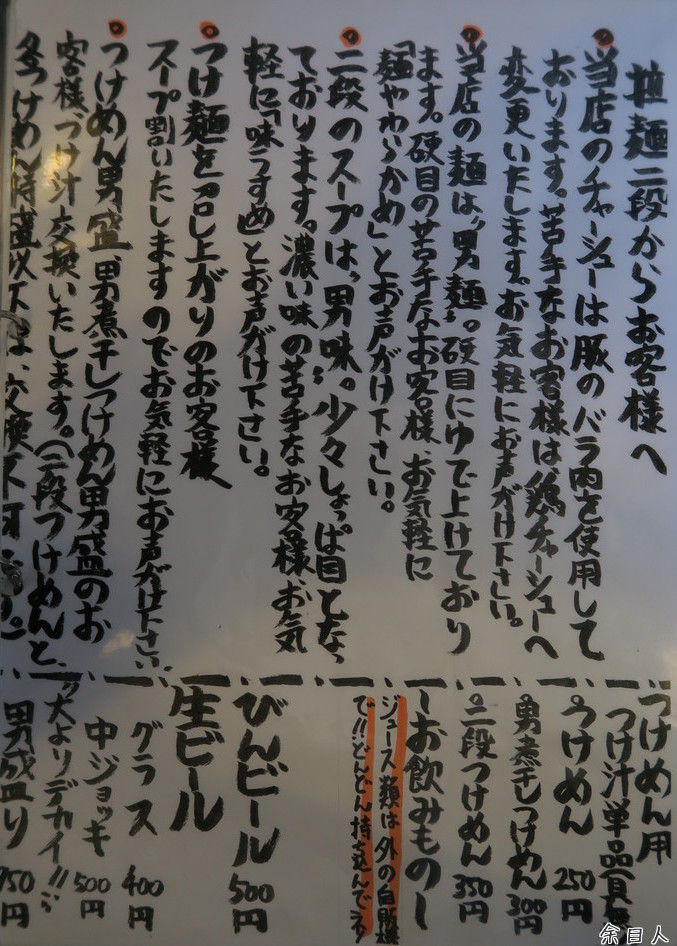 拉麺二段からお客様へ
当店のチャーシューは豚のバラ肉を使用して
おります。苦手なお客様は、鶏チャーシューへ
変更いたします。お気軽にお声がけ下さい。
当店の麺は、"男麺"。硬目にゆで上げており
ます。硬目の苦手なお客様、お気軽に
「麺やわらかめ」とお声がけ下さい。
二段のスープは、"男味"。少々しょっぱ目となっ
ております。濃い味の苦手なお客様、お気
軽に「味うすめ」とお声がけ下さい。
つけ麺を召し上がりのお客様
スープ割いたしますのでお気軽にお声がけ下さい。
つけめん男盛、男煮干しつけめん男盛のお
客様づけ汁交換いたします。(二段つけめんと、
つけめん用
つけ汁単品
つけめん 250円
男煮干しつけめん 300円
二段つけめん 350円
ーお飲みものー
ジュース類は外の自販機
で!!どんどん持ち込んで
びんビール 500円
生ビール
グラス 400円
中ジョッキ 500円
"大よりデカイ!!"
男盛り 750円
余目人